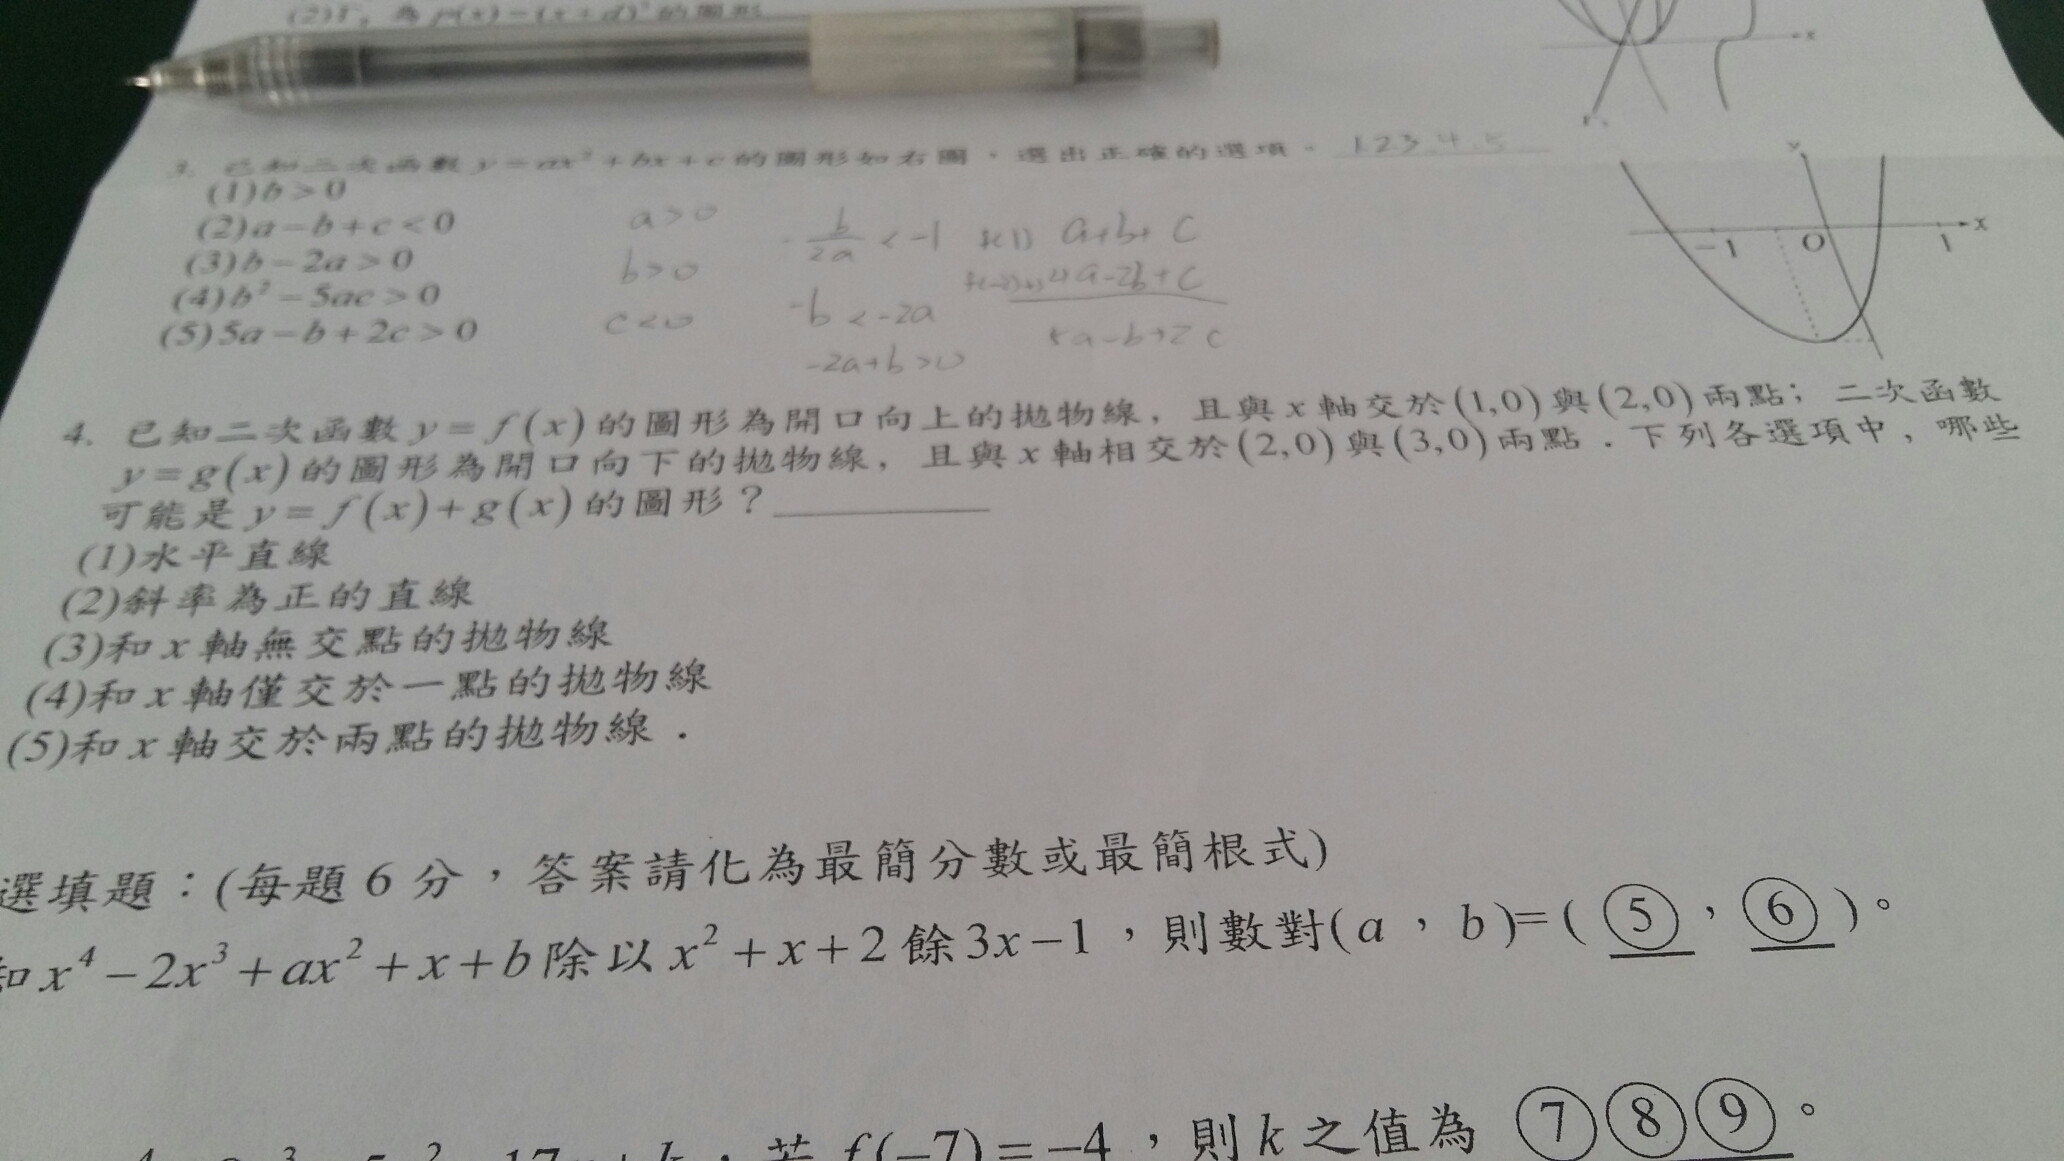 (2) Γ₂ 為 p(x)=(x+d)³ 的圖形
x
Γ₁
3. 已知二次函數 y=ax²+bx+c 的圖形如右圖，選出正確的選項。 1.2.3.4.5
(1) b>0
(2) a-b+c<0
(3) b-2a>0
(4) b²-5ac>0
(5) 5a-b+2c>0
a>0
b>0
c<0
-b/2a < -1
-b < -2a
-2a+b>0
f(1) a+b+c
f(-2) +) 4a-2b+c
5a-b+2c
y
-1 O 1 x
4. 已知二次函數 y=f(x) 的圖形為開口向上的拋物線，且與 x 軸交於 (1,0) 與 (2,0) 兩點；二次函數
y=g(x) 的圖形為開口向下的拋物線，且與 x 軸相交於 (2,0) 與 (3,0) 兩點．下列各選項中，哪些
可能是 y=f(x)+g(x) 的圖形？
(1)水平直線
(2)斜率為正的直線
(3)和 x 軸無交點的拋物線
(4)和 x 軸僅交於一點的拋物線
(5)和 x 軸交於兩點的拋物線．
選填題：(每題 6 分，答案請化為最簡分數或最簡根式)
知 x⁴-2x³+ax²+x+b 除以 x²+x+2 餘 3x-1，則數對(a，b)=( ⑤ ， ⑥ )。
若 f(-7)=-4，則 k 之值為 ⑦⑧⑨。